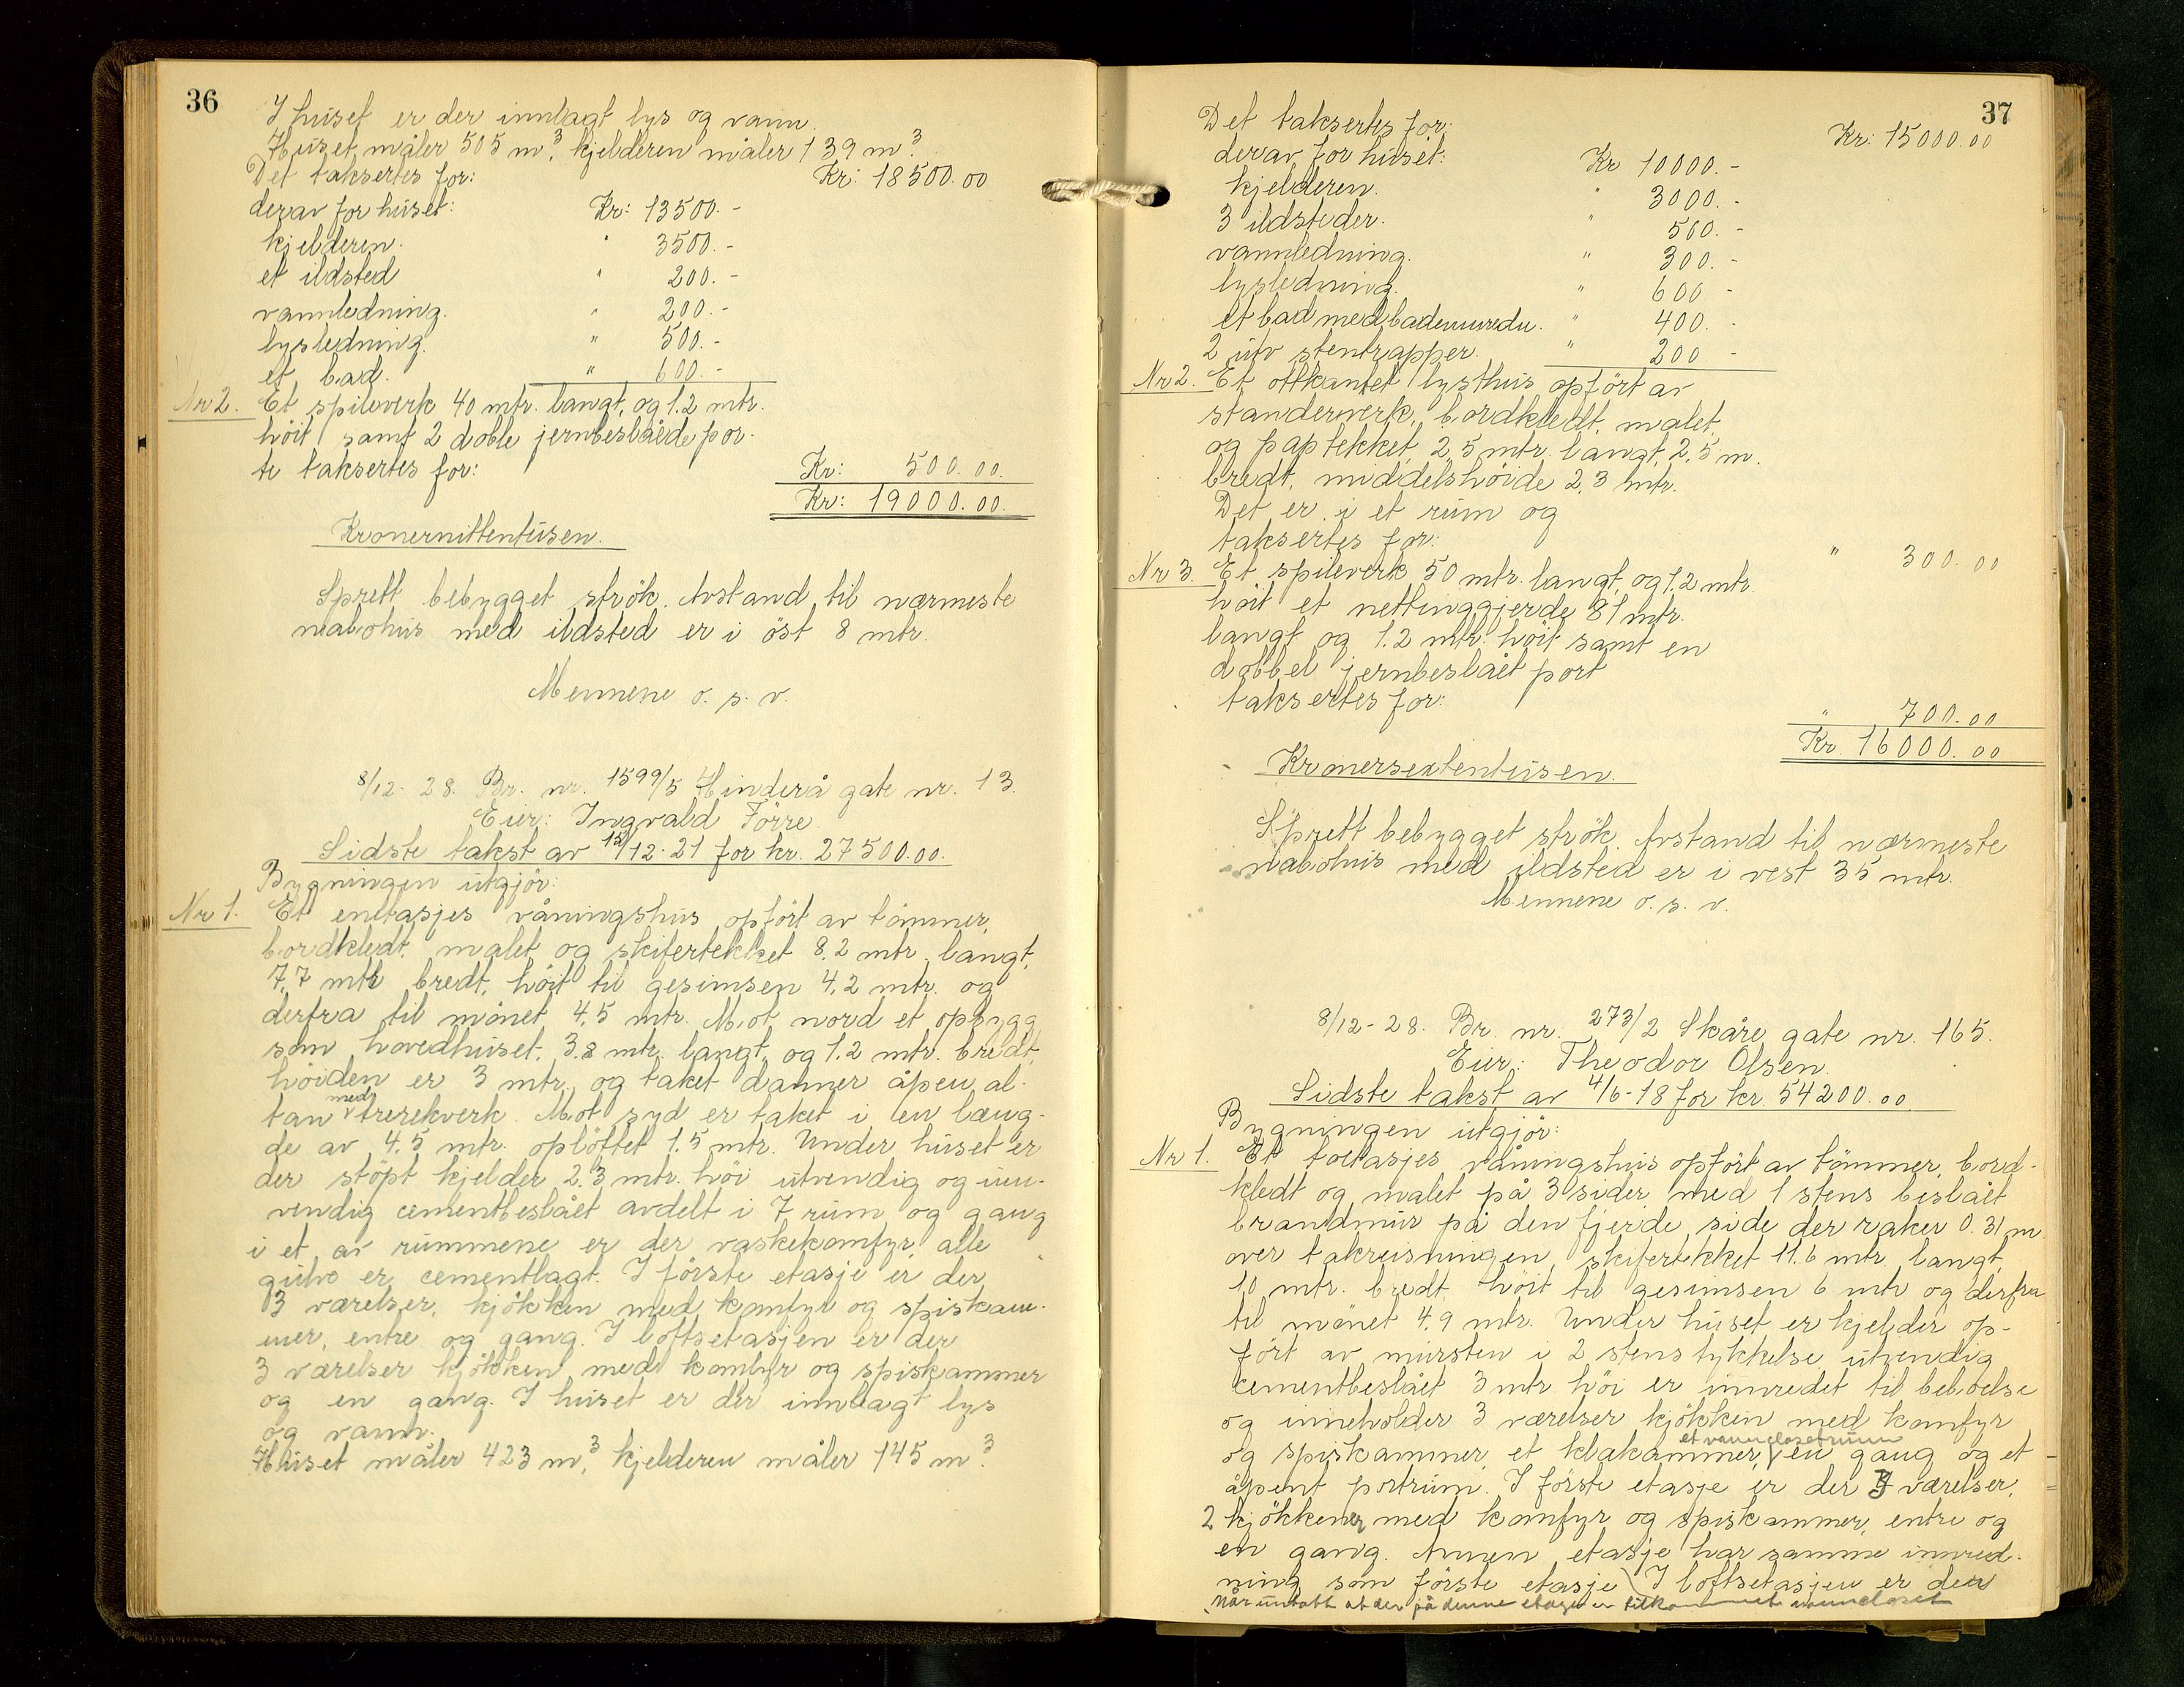 36
I huset er der innlagt lys og vann.
Huset måler 505 m³, kjelderen måler 139 m³.
Det taksertes for: Kr: 18500.00
derav for huset: Kr: 13500.-
kjelderen. " 3500.-
et ildsted " 200.-
vannledning. " 200.-
lysledning. " 500.-
et bad. " 600.-
Nr 2. Et spileverk 40 mtr. langt, og 1.2 mtr.
höit samt 2 doble jernbeslåede por-
te taksertes for: Kr: 500.00.
Kr: 19000.00.
Kronernittentusen.
Sprett bebygget strök. Avstand til nærmeste
nabohus med ildsted er i öst 8 mtr.
Mennene o. s. v.
8/12- 28. Br. nr. 1599/5 Hinderå gate nr. 13.
Eier: Ingvald Förre
Sidste takst av 15/12-21 for kr. 27500.00.
Bygningen utgjör:
Nr 1. Et enetasjes våningshus opfört av tömmer,
bordkledt, malet og skifertekket 8.2 mtr. langt,
7,7 mtr bredt, höit til gesimsen 4,2 mtr. og
derfra til mönet 4,5 mtr. Mot nord et opbygg
som hovedhuset, 3.8 mtr. langt, og 1.2 mtr. bredt,
höiden er 3 mtr. og taket danner åpen al-
tan med trerekverk. Mot syd er taket i en læng-
de av 4.5 mtr. oplöftet 1.5 mtr. Under huset er
der stöpt kjelder 2.3 mtr. höi utvendig og inn-
vendig cementbeslået avdelt i 7 rum og gang
i et av rummene er der vaskekomfyr, alle
gulve er cementlagt. I förste etasje er der
3 værelser, kjökken med komfyr og spiskam-
mer, entre og gang. I loftsetasjen er der
3 værelser kjökken med komfyr og spiskammer
og en gang. I huset er der innlagt lys
og vann.
Huset måler 423 m³, kjelderen måler 145 m³.
37
Det taksertes for: Kr: 15000.00
derav for huset: Kr 10000.-
kjelderen. " 3000.-
3 ildsteder. " 500.-
vannledning. " 300.-
lysledning. " 600 -
et bad med bademuredn. " 400. -
2 utv stentrapper. " 200 -
Nr 2. Et ottkantet lysthus opfört av
standerverk, bordkledt, malet,
og paptekket, 2,5 mtr. langt, 2,5 m.
bredt, middelshöide 2,3 mtr.
Det er i et rum og
taksertes for: " 300.00
Nr 3. Et spileverk 50 mtr. langt, og 1.2 mtr.
höit et nettinggjerde 81 mtr.
langt og 1.2 mtr. höit samt en
dobbel jernbeslået port
taksertes for: " 700.00
Kr. 16000.00
Kronersextentusen.
Sprett bebygget strök. Avstand til nærmeste
nabohus med ildsted er i vest 35 mtr.
Mennene o. s. v.
8/12-28. Br. nr. 273/2 Skåre gate nr. 165.
Eier: Theodor Olsen.
Sidste takst av 4/6-18 for kr. 54200.00
Bygningen utgjör:
Nr 1. Et toetasjes våningshus opfört av tömmer, bord-
kledt og malet på 3 sider med 1 stens beslået
brandmur på den fjerde side der raker 0.31 m
over takreisningen, skifertekket 11.6 mtr. langt,
10 mtr. bredt, höit til gesimsen 6 mtr og derfra
til mönet 4.9 mtr. Under huset er kjelder op-
fört av mursten i 2 stens tykkelse, utvendig
cementbeslået 3 mtr höi er innredet til beboelse
og inneholder 3 værelser kjökken med komfyr
og spiskammer, et klækammer, et vannclosetrum en gang og et
åpent portrum. I förste etasje er der værelser,
2 kjökkener med komfyr og spiskammer, entre og
en gang. Annen etasje har samme innred-
ning som förste etasje I loftsetasjen er der
når untatt at der på denne etage er tilkommet vanncloset